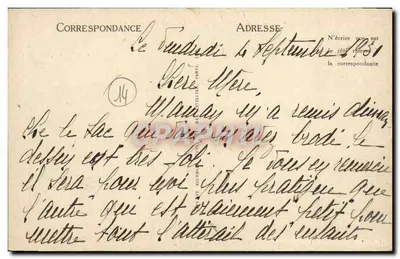 CORRESPONDANCE
ADRESSE
N'écrire
la correspondance
Le Vendredi 4 Septembre 1931
Chère Mère,
14
Maman m'a remis diman
che le sac que vous m'avez brodé. Le
dessin est très joli. Je vous en remercie
il sera pour moi plus pratique que
l'autre qui est vraiment petit pour
mettre tout l'attirail des enfants.